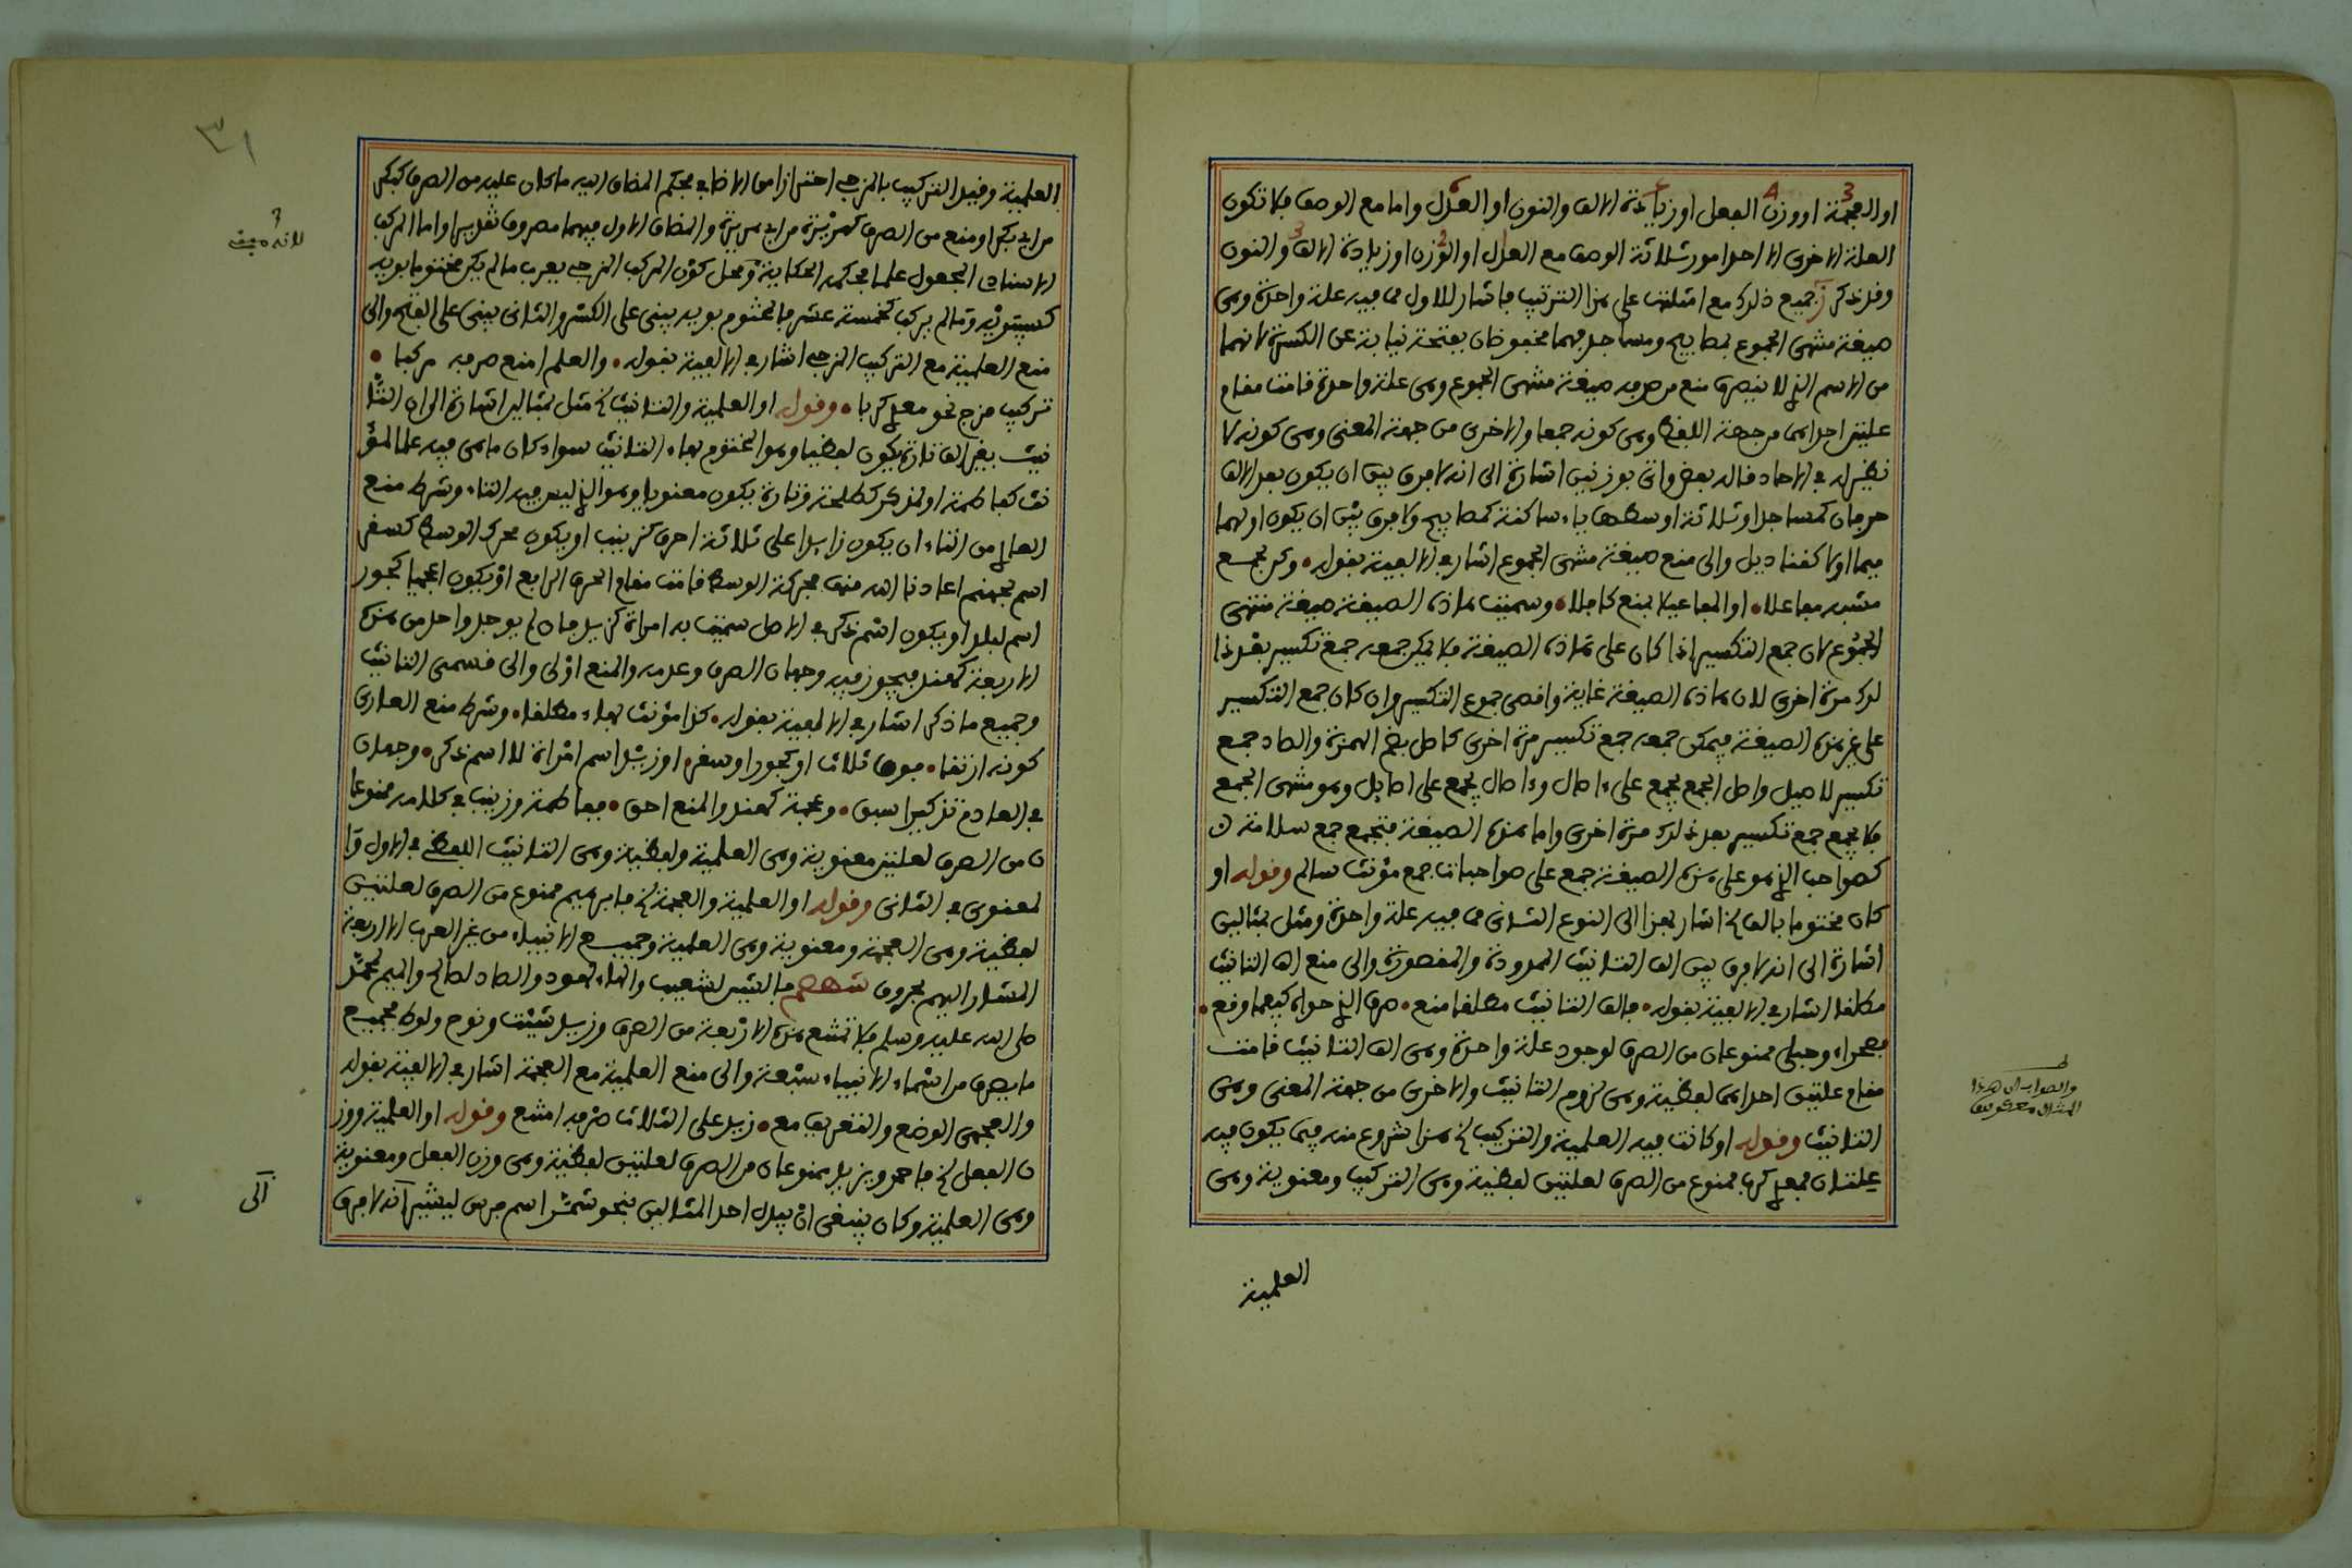 او العجمة او وزن الفعل او زيادة الالف والنون او العدل واما مع الوصف فلا تكون
العلة الاخرى الا احدا مور ثلاثة الوصف مع العدل او الوزن او زيادة الالف والنون
وقد ذكر جميع ذلك مع امثلتها على هذا الترتيب فاشار للاول مما فيه علة واحدة وهي
صيغة منتهى الجموع بمصابيح ومساجد فهما مخفوضان بفتحة نيابة عن الكسرة لانهما
من الاسم الذي لا ينصرف منع من صرفه صيغة منتهى الجموع وهي علة واحدة قامت مقام
علتين احداهما من جهة اللفظ وهي كونه جمعا والاخرى من جهة المعنى وهي كونه لا
نظير له في الاحاد قاله بعض واتى بوزنين اشارة الى انه لا فرق بين ان يكون بعد الالف
حرفان كمساجد او ثلاثة اوسطها ياء ساكنة كمصابيح ولا فرق بين ان يكون اولهما
ميما اولا كقناديل والى منع صيغة منتهى الجموع اشار في الالفية بقوله • وكن لجمع
مشبه مفاعلا • او المفاعيل بمنع كافلا • وسميت هاذه الصيغة صيغة منتهى
الجموع لان جمع التكسير اذا كان على هاذه الصيغة فلا يمكن جمعه جمع تكسير بعد ذا
لك مرة اخرى لان هاذه الصيغة غاية واقصى جموع التكسير وان كان جمع التكسير
على غير هذه الصيغة فيمكن جمعه جمع تكسير مرة اخرى كاصل بضم الهمزة والصاد جمع
تكسير لاصيل واصل الجمع يجمع على ءاصال وءاصال يجمع على اصايل وهو منتهى الجمع
فلا يجمع جمع تكسير بعد ذلك مرة اخرى واما هذه الصيغة فتجمع جمع سلامة
كصواحب الذي هو على هذه الصيغة جمع على صواحبات جمع مؤنث سالم وقوله او
كان مختوما بالف الخ اشار بهذا الى النوع الثاني مما فيه علة واحدة ومثل بمثالين
اشارة الى انه لا فرق بين الف التانيث الممدودة والمقصورة والى منع الف التانيث
مطلقا اشار في الالفية بقوله • فالف التانيث مطلقا منع • صرف الذي حواه كيفما وقع •
فصحراء وحبلى ممنوعان من الصرف لوجود علة واحدة وهي الف التانيث قامت
مقام علتين احداهما لفظية وهي لزوم التانيث والاخرى من جهة المعنى وهي
التانيث وقوله او كانت فيه العلمية والتركيب الخ هذا شروع منه فيما يكون فيه
علتان فمعدي كرب ممنوع من الصرف لعلتين لفظية وهي التركيب ومعنوية وهي
العلمية
والصواب ان هذا
المثال
٣١
العلمية وقيد التركيب بالمزجي احترازا من الاضافي فحكم المضاف اليه ما كان عليه من الصرف كبكر
من ابي بكر او منع من الصرف كهريرة من ابي هريرة والمضاف الاول فيهما مصروف تقديرا واما المركب
الاسنادي المجعول علما فحكمه الحكاية ومحل كون المركب المزجي يعرب ما لم يكن مختوما بويه
كسيبويه وما لم يركب كخمسة عشر فالمختوم بويه يبنى على الكسر والثاني يبنى على الفتح والى
منع العلمية مع التركيب المزجي اشار في الالفية بقوله • والعلم امنع صرفه مركبا •
تركيب مزج نحو معدي كربا • وقوله او العلمية والتانيث الخ مثل بمثالين اشارة الى ان التا
نيث بغير الف تارة يكون لفظيا وهو المختوم بهاء التانيث سواء كان ما هي فيه علما لمؤ
نث كفاطمة او لمذكر كطلحة وتارة يكون معنويا وهو الذي ليس فيه التاء وشرط منع
العاري من التاء ان يكون زايدا على ثلاثة احرف كزينب او يكون محرك الوسط كسقر
اسم لجهنم اعاذنا الله منها فحركة الوسط قامت مقام الحرف الرابع او يكون اعجميا كجور
اسم لبلد او يكون اسم ذكر في الاصل سميت به امراة كزيد فان لم يوجد واحد من هذه
الاربعة كهند فيجوز فيه وجهان الصرف وعدمه والمنع اولى والى قسمي التانيث
وجميع ما ذكر اشار في الالفية بقوله • كذا مؤنث بهاء مطلقا • وشرط منع العاري
كونه ارتقا • فوق الثلاث او كجور او سقر • او زيد اسم امراة لا اسم ذكر • وجهان
في العادم تذكيرا سبق • وعجمة كهند والمنع احق • ففاطمة وزينب في كلامه ممنوعا
ن من الصرف لعلتين معنوية وهي العلمية ولفظية وهي التانيث اللفظي في الاول وا
لمعنوي في الثاني وقوله او العلمية والعجمة الخ فابراهيم ممنوع من الصرف لعلتين
لفظية وهي العجمة ومعنوية وهي العلمية وجميع الانبياء من غير العرب الا الاربعة
المشار اليهم بحروف شهصم فالشين لشعيب والهاء لهود والصاد لصالح والميم لمحمد
صلى الله عليه وسلم فلا تمنع هذه الاربعة من الصرف وزيد شيث ونوح ولوط فجميع
ما يصرف من اسماء الانبياء سبعة والى منع العلمية مع العجمة اشار في الالفية بقوله
والعجمي الوضع والتعريف مع • زيد على الثلاث صرفه امتنع وقوله او العلمية ووز
ن الفعل الخ فاحمد ويزيد ممنوعان من الصرف لعلتين لفظية وهي وزن الفعل ومعنوية
وهي العلمية وكان ينبغي ان يبدل احد المثالين بنحو شمر اسم فرس ليشير انه لا فرق